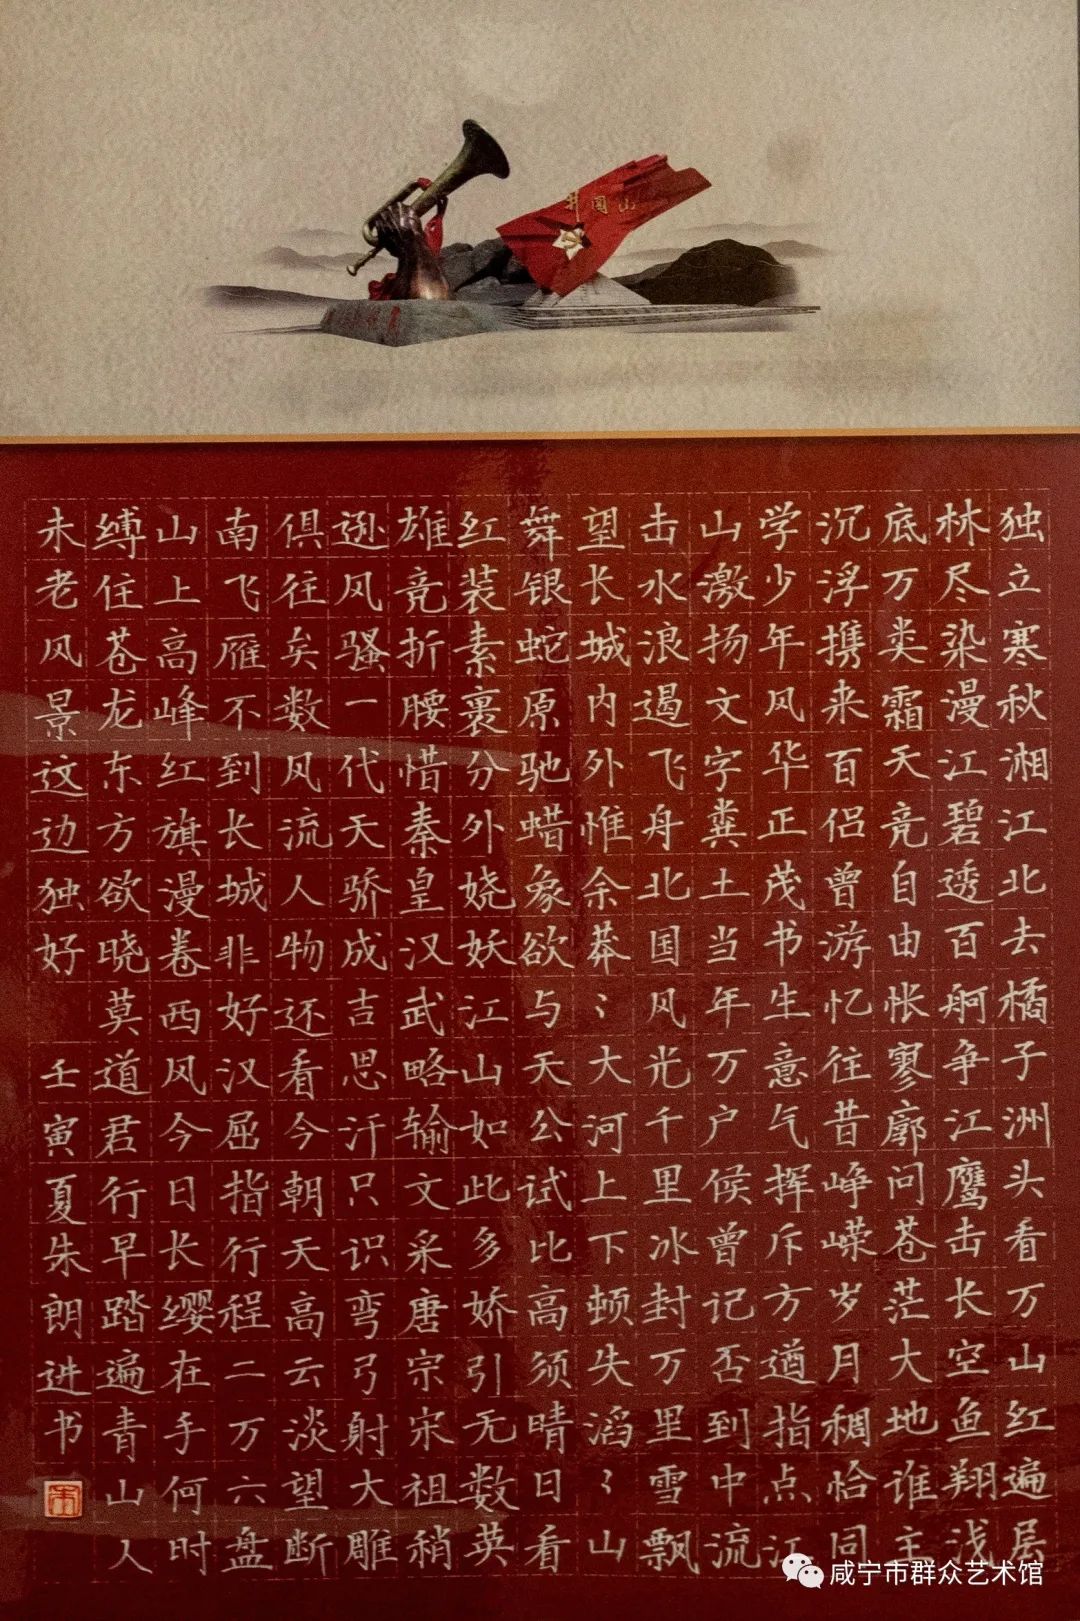 井冈山
独立寒秋湘江北去橘子洲头看万山红遍层
林尽染漫江碧透百舸争江鹰击长空鱼翔浅
底万类霜天竞自由怅寥廓问苍茫大地谁主
沉浮携来百侣曾游忆往昔峥嵘岁月稠恰同
学少年风华正茂书生意气挥斥方遒指点江
山激扬文字粪土当年万户候曾记否到中流
击水浪遏飞舟北国风光千里冰封万里雪飘
望长城内外惟余莽〻大河上下顿失滔〻山
舞银蛇原驰蜡象欲与天公试比高须晴日看
红装素裹分外娆妖江山如此多娇引无数英
雄竞折腰惜秦皇汉武略输文采唐宗宋祖稍
逊风骚一代天骄成吉思汗只识弯弓射大雕
俱往矣数风流人物还看今朝天高云淡望断
南飞雁不到长城非好汉屈指行程二万六盘
山上高峰红旗漫卷西风今日长缨在手何时
缚住苍龙东方欲晓莫道君行早踏遍青山人
未老风景这边独好 壬寅夏朱朗进书
咸宁市群众艺术馆